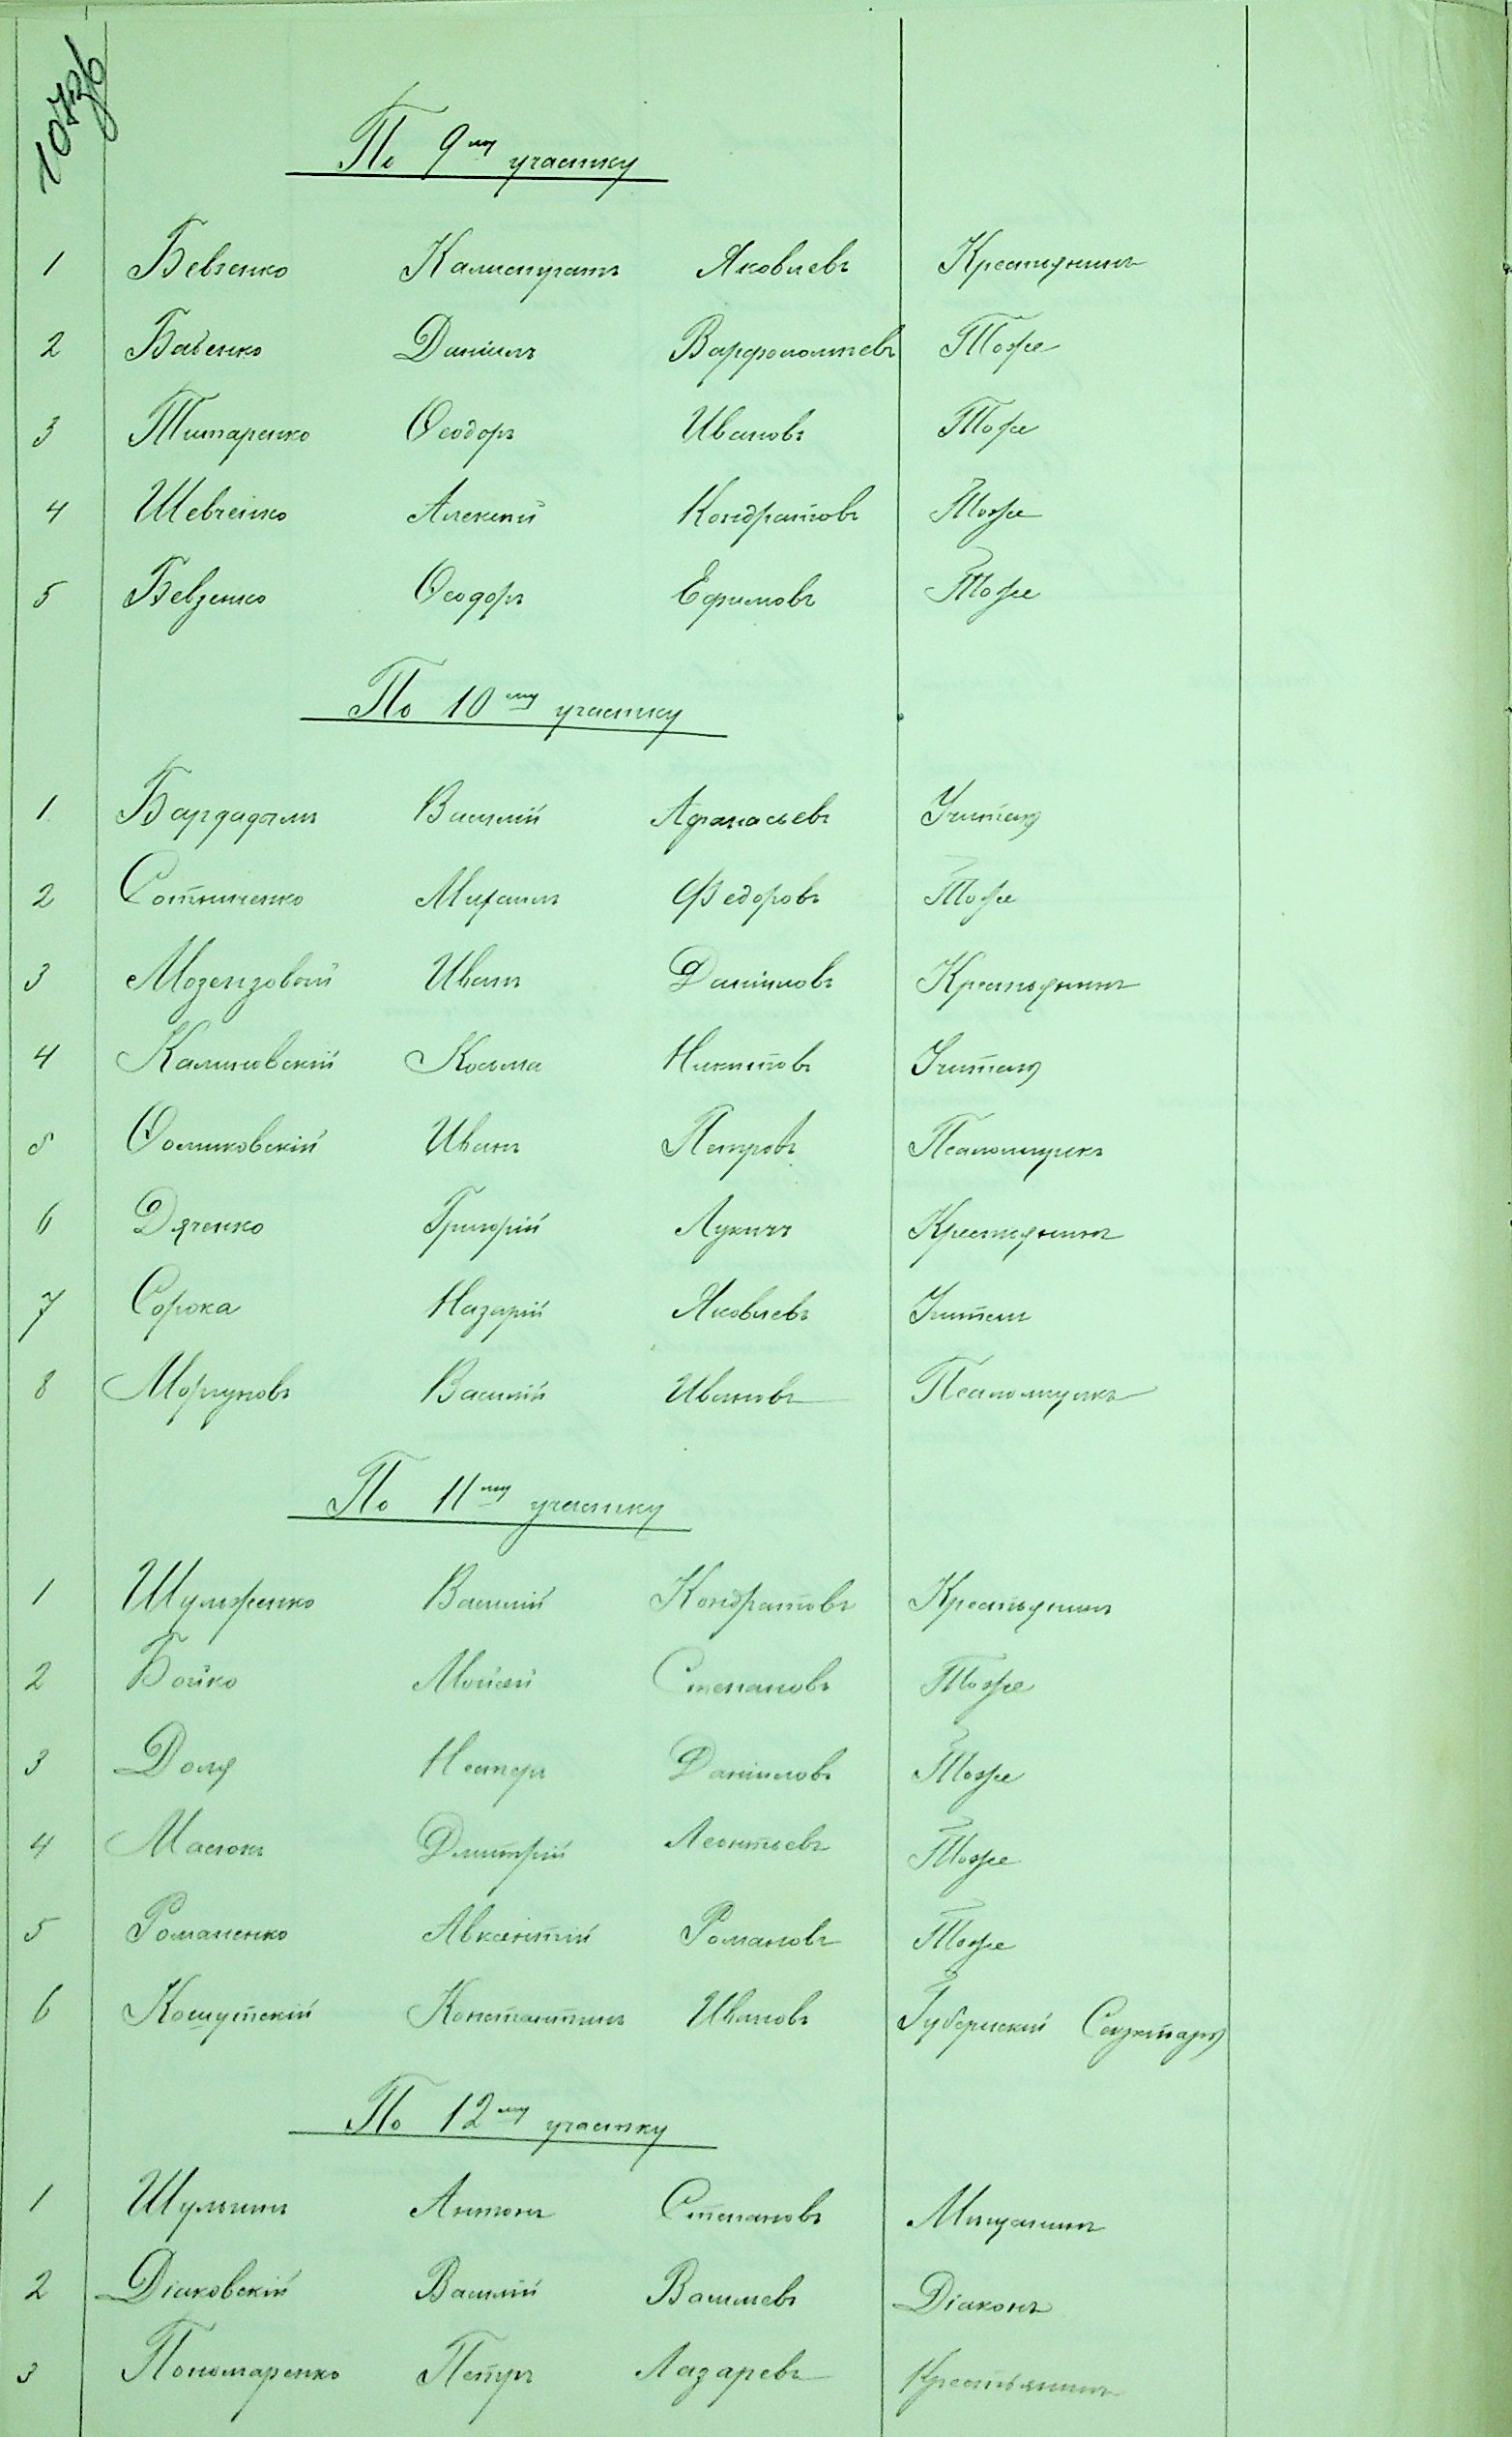 По 9му участку
1 Бевзенко Калистратъ Яковлевъ Крестьянинъ
2 Бабенко Даніилъ Варфоломѣевъ Тоже
3 Титаренко Ѳеодоръ Ивановъ Тоже
4 Шевченко Алексѣй Кондратовъ Тоже
5 Бевзенко Ѳеодоръ Ефимовъ Тоже
По 10му участку
1 Бардадымъ Василій Афанасьевъ Учитель
2 Сотниченко Михаилъ Федоровъ Тоже
3 Иванъ Даніиловъ Крестьянинъ
4 Калиновскій Косьма Никитовъ Учитель
5 Ѳомиковскій Иванъ Петровъ Псаломщикъ
6 Дяченко Григорій Лукичъ Крестьянинъ
7 Сорока Назарій Яковлевъ Учитель
8 Моргуновъ Василій Ивановъ Псаломщикъ
По 11му участку
1 Василій Кондратовъ Крестьянинъ
2 Бойко Мойсей Степановъ Тоже
3 Доля Несторъ Даніиловъ Тоже
4 Масюкъ Дмитрій Леонтьевъ Тоже
5 Романенко Авксентій Романовъ Тоже
6 Кошутскій Константинъ Ивановъ Губернскій Секретарь
По 12му участку
1 Шульгинъ Антонъ Степановъ Мѣщанинъ
2 Діаковскій Василій Васильевъ Діаконъ
3 Пономаренко Петръ Лазаревъ Крестьянинъ